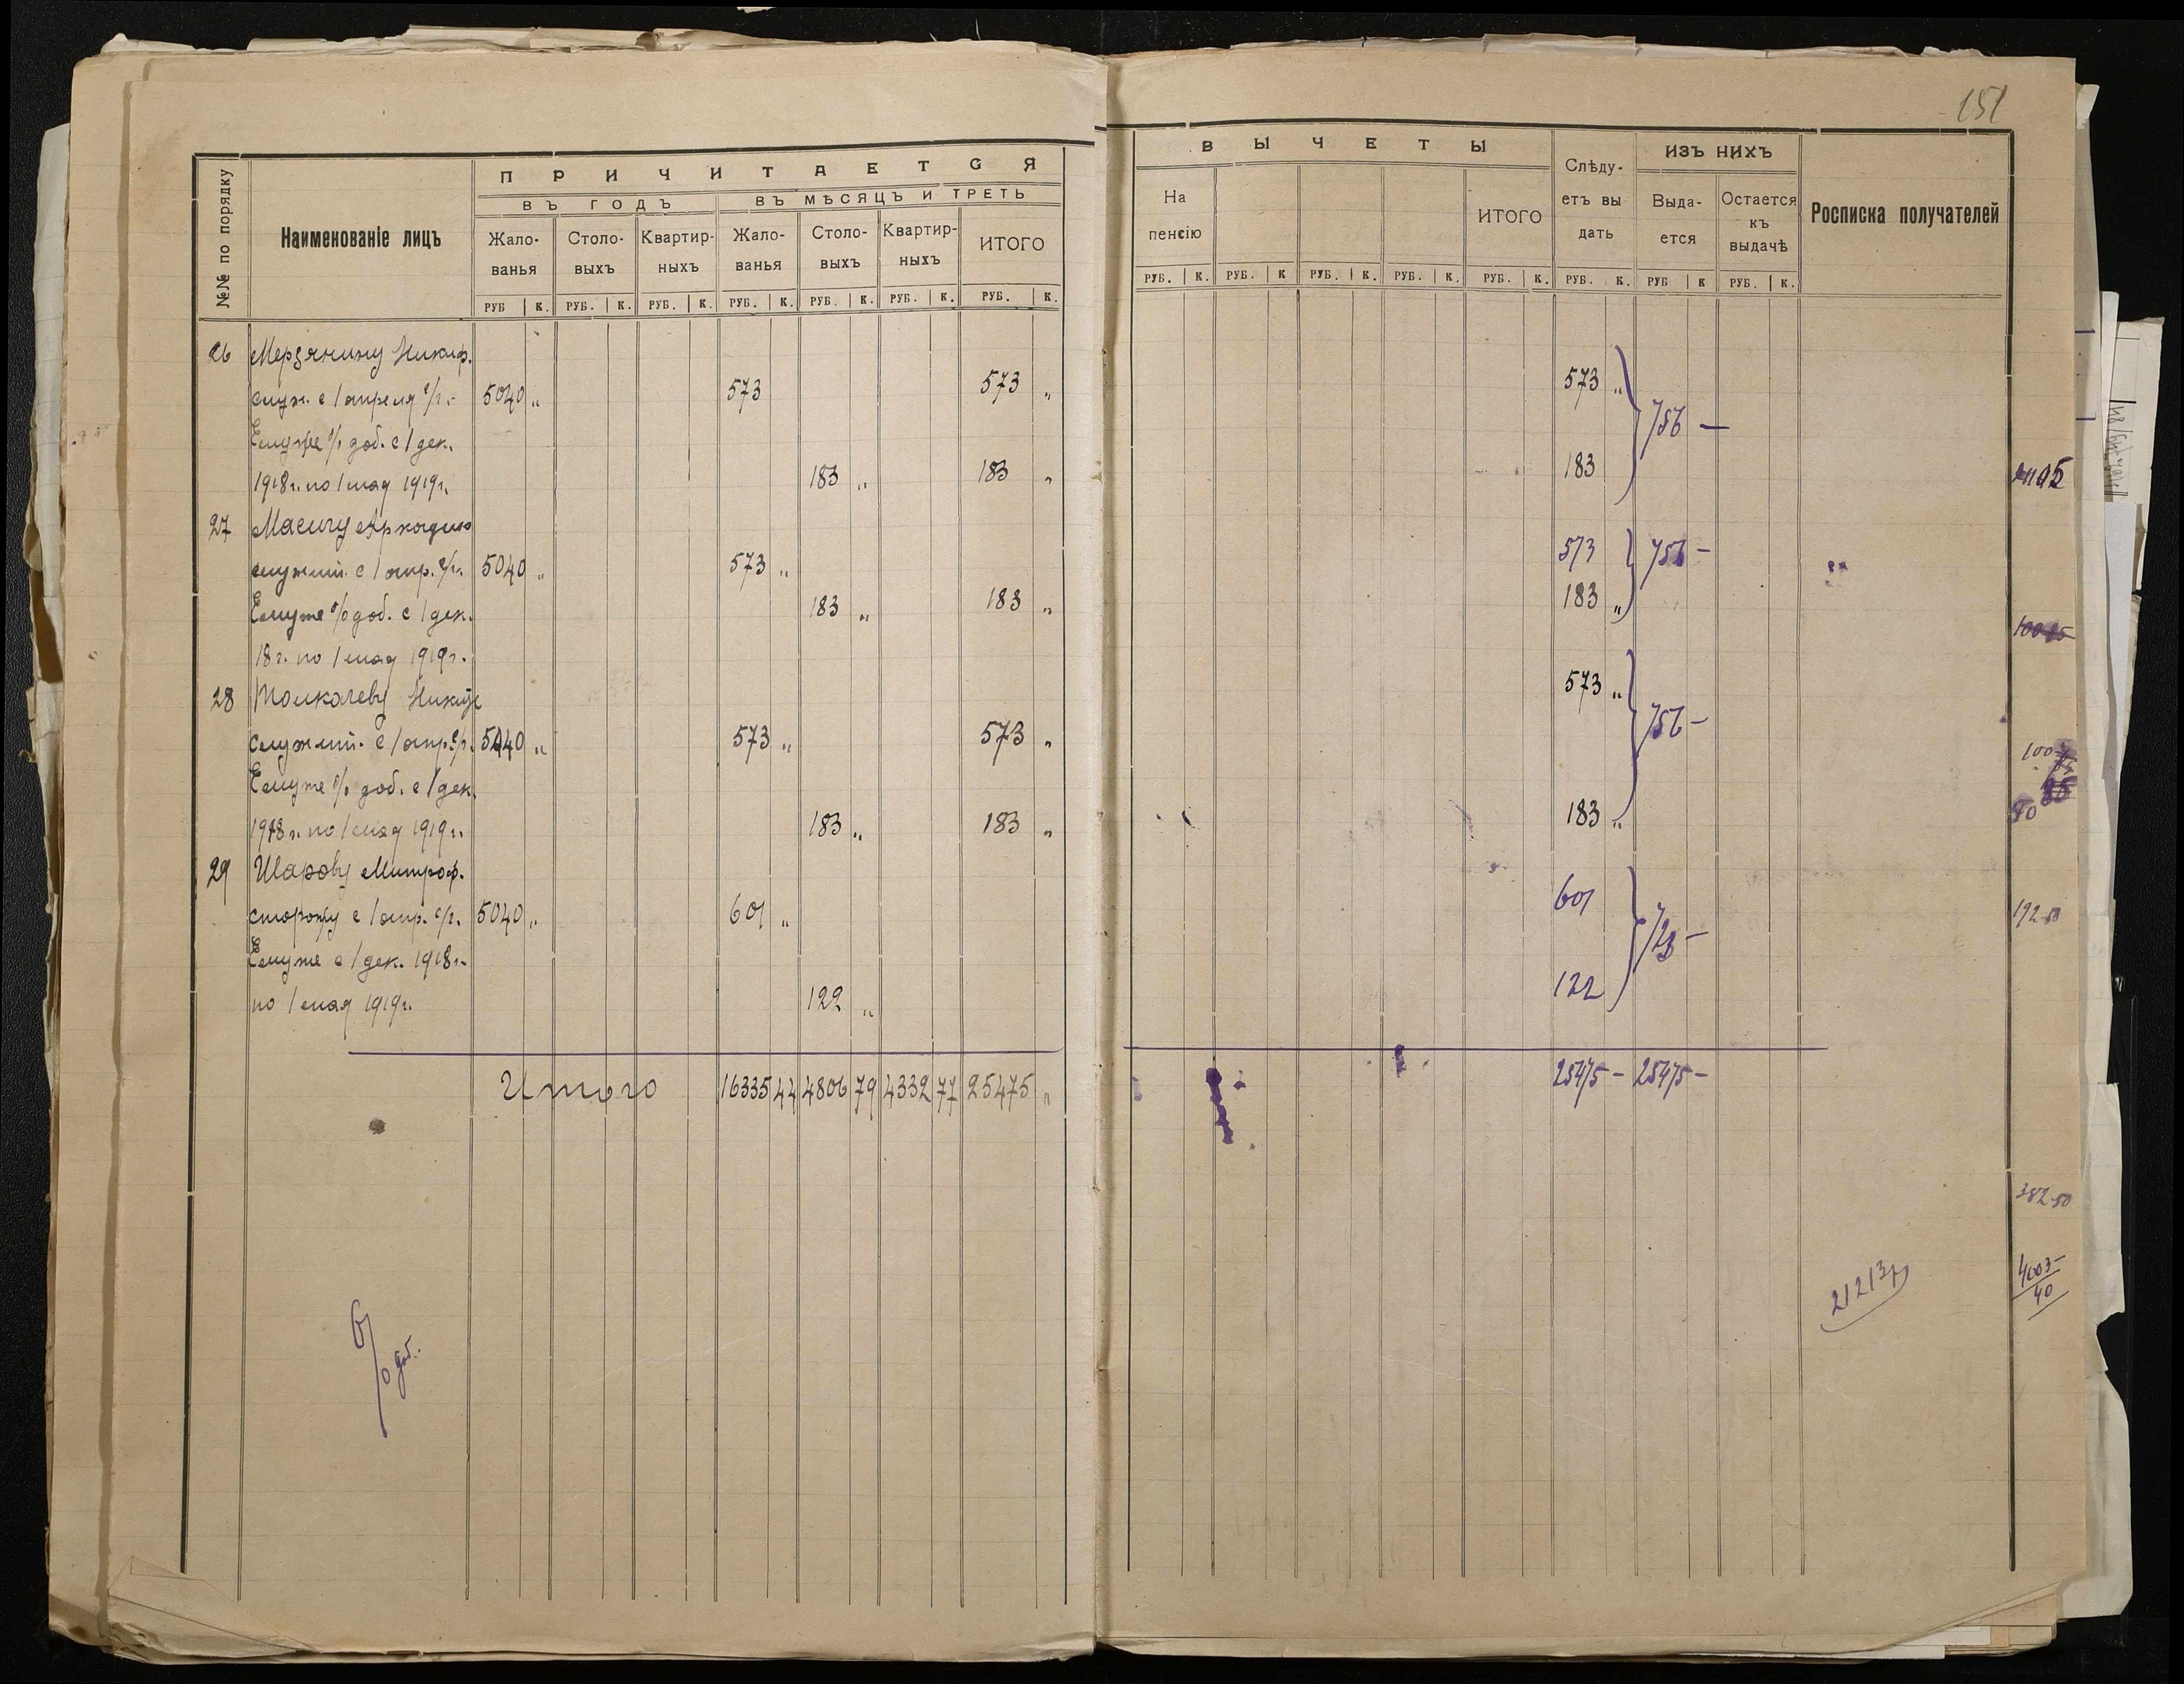 151
№№ по порядку
Наименованіе лицъ
ПРИЧИТАЕТСЯ
ВЪ ГОДЪ
ВЪ МѢСЯЦЪ И ТРЕТЬ
Жало-ванья
Столо-выхъ
Квартир-ныхъ
Жало-ванья
Столо-выхъ
Квартир-ныхъ
ИТОГО
РУБ К. РУБ. К. РУБ. К. РУБ. К. РУБ. К. РУБ. К. РУБ. К.
ВЫЧЕТЫ
На пенсію
ИТОГО
Слѣду-етъ вы дать
ИЗЪ НИХЪ
Выда-ется
Остается къ выдачѣ
Росписка получателей
РУБ. К. РУБ. К РУБ. К. РУБ. К. РУБ. К. РУБ. К. РУБ К РУБ. К.
26 Мерзянину Никиф.
служ. с 1 апреля с/г. 5040 „ 573 573 „ 573 „
Ему же % доб. с 1 дек. 756 —
1918 г. по 1 мая 1919 г. 183 „ 183 „ 183
27 Масичу Аркадию
служит. с 1 апр. с/г. 5040 „ 573 „ 573 756 —
Ему же % доб. с 1 дек. 183 „ 183 „ 183 „
18 г. по 1 мая 1919 г.
28 Никите 573 „
служит. с 1 апр. с/г. 5040 „ 573 „ 573 „ 756 —
Ему же % доб. с 1 дек.
1918 г. по 1 мая 1919 г. 183 „ 183 „ 183 „
29 Шарову Митроф.
сторожу с 1 апр. с/г. 5040 „ 601 „ 601 723 —
Ему же с 1 дек. 1918 г.
по 1 мая 1919 г. 122 „ 122
Итого 16335 44 4806 79 4332 77 25475 „ 25475 — 25475 —
% доб.
192-50
382-50
4003-
40